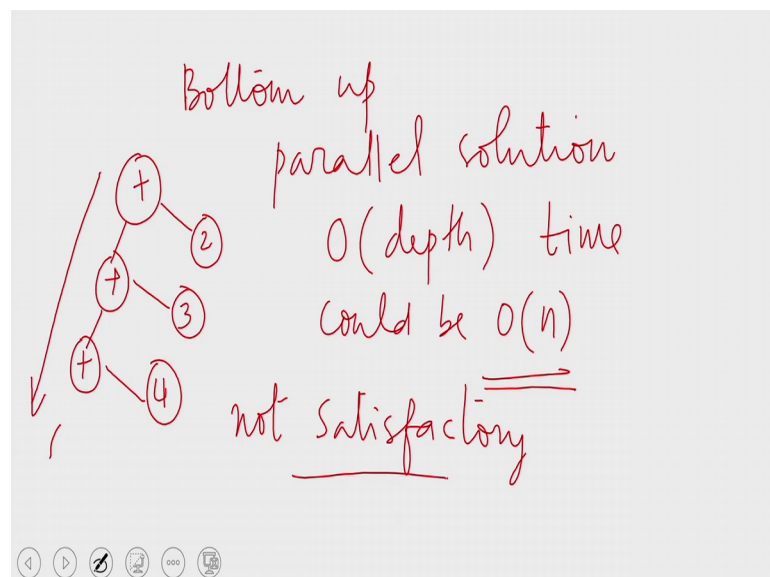 Bottom up
parallel solution
O(depth) time
could be O(n)
not satisfactory
+
2
+
3
+
4